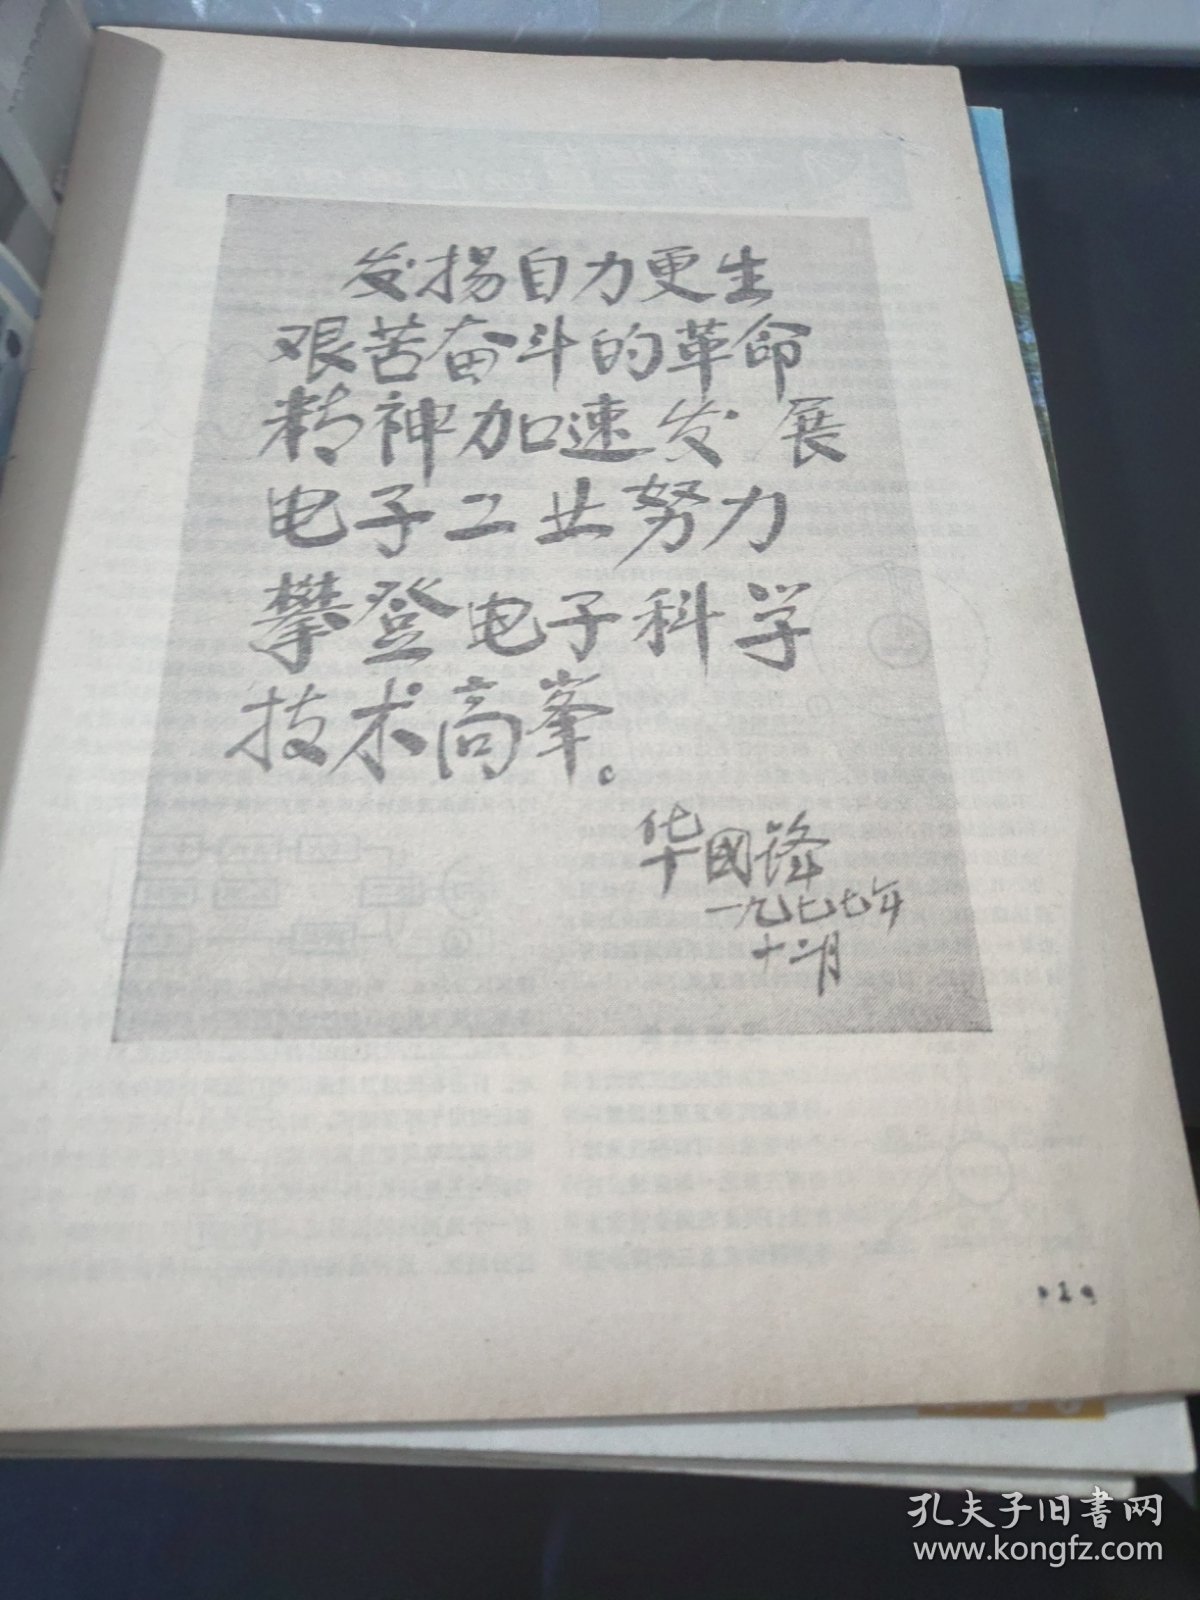 发揚自力更生
艰苦奋斗的革命
精神加速发展
电子工业努力
攀登电子科学
技术高峯。
华國锋
一九七七年
十二月
1
孔夫子旧书网
www.kongfz.com